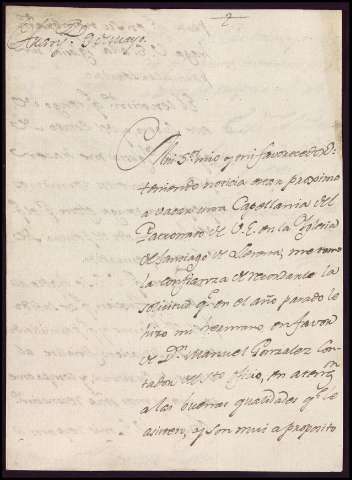 Mui Sr. mio y mi favorecedor
teniendo noticia estar proximo
a vacar una Capellania del
Patronato de V.E. en la Yglesia
de Santiago de Llerena, me tomo
la confianza de recordarle la
solicitud qe. en el año pasado le
hizo mi hermano en favor
de Dn. Manuel Gonzalez Con-
tador de sto. ofizio, en atenzn.
a las buenas qualidades qe. le
asisten, qe son mui a proposito